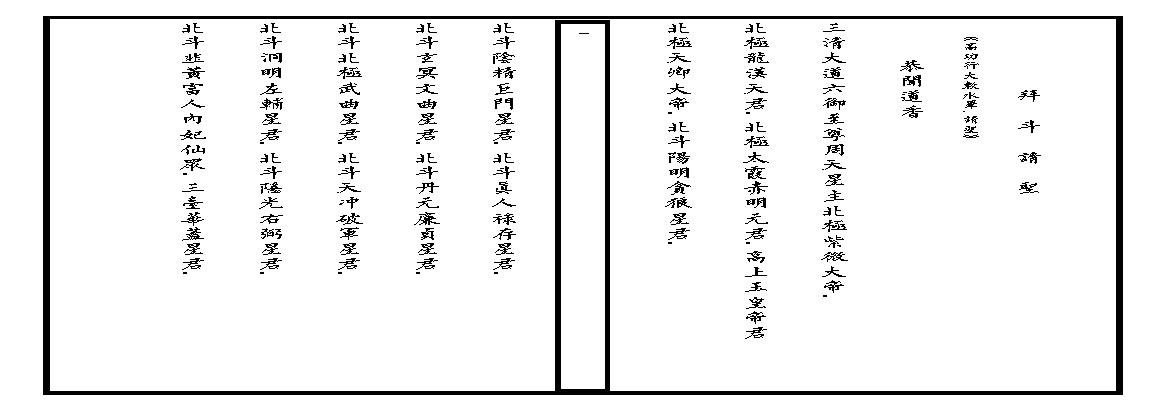 拜斗請聖
《高功行大敕水畢，請聖》
恭聞道香
三清大道六御至尊周天星主北極紫微大帝．
北極龍漢天君．北極太霞赤明元君．高上玉皇帝君
北極天卿大帝．北斗陽明貪狼星君．
一
北斗陰精巨門星君．北斗真人祿存星君．
北斗玄冥文曲星君．北斗丹元廉貞星君．
北斗北極武曲星君．北斗天冲破軍星君．
北斗洞明左輔星君．北斗隱光右弼星君．
北斗黃富人內妃仙眾．三臺華蓋星君．